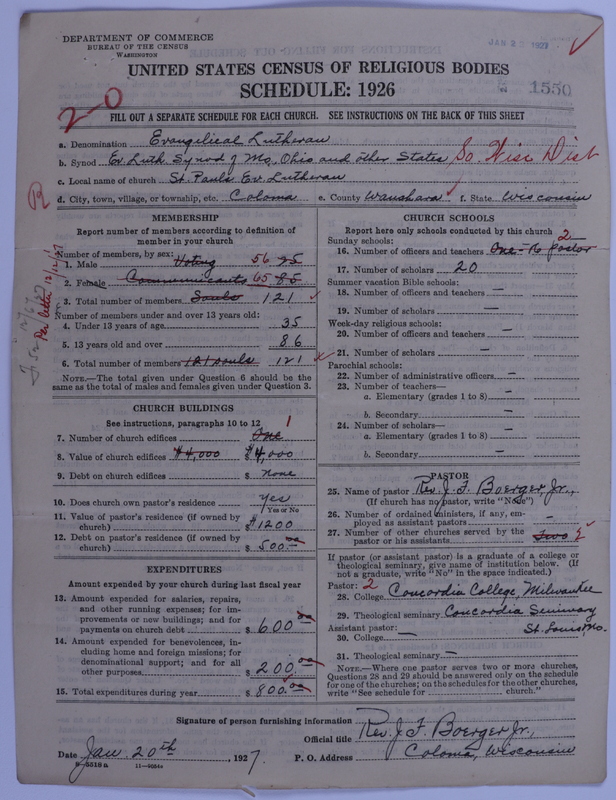 DEPARTMENT OF COMMERCE
BUREAU OF THE CENSUS
WASHINGTON
JAN 2 1927
UNITED STATES CENSUS OF RELIGIOUS BODIES
SCHEDULE: 1926
1550
20
FILL OUT A SEPARATE SCHEDULE FOR EACH CHURCH. SEE INSTRUCTIONS ON THE BACK OF THIS SHEET
a. Denomination Evangelical Lutheran
b. Synod Ev. Luth. Synod of Mo, Ohio and other States So. Wisc Dist
c. Local name of church St. Pauls Ev. Lutheran
R
d. City, town, village, or township, etc. Coloma e. County Waushara f. State Wisconsin
MEMBERSHIP
Report number of members according to definition of member in your church
Number of members, by sex:
1. Male Voting 56 25
2. Female Communicants 65 85
3. Total number of members Souls 121
Number of members under and over 13 years old:
4. Under 13 years of age 35
5. 13 years old and over 86
6. Total number of members 121 souls 121
NOTE.—The total given under Question 6 should be the same as the total of males and females given under Question 3.
Per letter 12/12/27
CHURCH BUILDINGS
See instructions, paragraphs 10 to 12
7. Number of church edifices One 1
8. Value of church edifices $4,000 $4,000
9. Debt on church edifices $ none
10. Does church own pastor's residence yes
Yes or No
11. Value of pastor's residence (if owned by church) $1200
12. Debt on pastor's residence (if owned by church) $ 500.00
EXPENDITURES
Amount expended by your church during last fiscal year
13. Amount expended for salaries, repairs, and other running expenses; for improvements or new buildings; and for payments on church debt $ 600.00
14. Amount expended for benevolences, including home and foreign missions; for denominational support; and for all other purposes $ 200.00
15. Total expenditures during year $ 800.00
CHURCH SCHOOLS
Report here only schools conducted by this church
Sunday schools:
16. Number of officers and teachers One - Pastor 2
17. Number of scholars 20
Summer vacation Bible schools:
18. Number of officers and teachers —
19. Number of scholars —
Week-day religious schools:
20. Number of officers and teachers —
21. Number of scholars —
Parochial schools:
22. Number of administrative officers —
23. Number of teachers—
a. Elementary (grades 1 to 8) —
b. Secondary —
24. Number of scholars—
a. Elementary (grades 1 to 8) —
b. Secondary —
PASTOR
25. Name of pastor Rev. J. F. Boerger, Jr.,
(If church has no pastor, write "None")
26. Number of ordained ministers, if any, employed as assistant pastors —
27. Number of other churches served by the pastor or his assistants Two 2
If pastor (or assistant pastor) is a graduate of a college or theological seminary, give name of institution below. (If not a graduate, write "No" in the space indicated.)
Pastor: 2
28. College Concordia College, Milwaukee
29. Theological seminary Concordia Seminary
St. Louis, Mo.
Assistant pastor:
30. College —
31. Theological seminary —
NOTE.—Where one pastor serves two or more churches, Questions 28 and 29 should be answered only on the schedule for one of the churches; on the schedules for the other churches, write "See schedule for church."
Signature of person furnishing information Rev. J. F. Boerger Jr.,
Official title
Date Jan. 20th, 1927. P. O. Address Coloma, Wisconsin
8-5518a 11-4664a